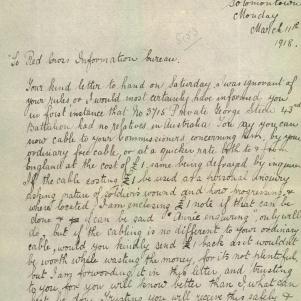 Solomontown
Monday
March 11th
1918.
To Red Cross Information bureau.
Your kind letter to hand on Saturday, I was ignorant of
your rules or I would most certainly have informed you
in first instance that No 3715 Private George 43rd
Battalion had no relatives in Australia. You say you can
now cable to your Commissioners concerning him, by your
ordinary cable, or at a quicker rate both to & from
England at the cost of £1 same being defrayed by inquirer
If the cable costing £1 be used as a personal inquiry
asking nature of soldiers wound and how progressing, &
where located, I am enclosing £1 note if that can be
done & it can be said "Annie enquiring" only will
do, but if the cabling is no different to your ordinary
cable, would you kindly send £1 back as it wouldn't
be worth while wasting the money, for it's not plentiful
but I am forwarding it in this letter, and trusting
to you for you will know better than I, what can
best be done. Trusting you will receive this safely &